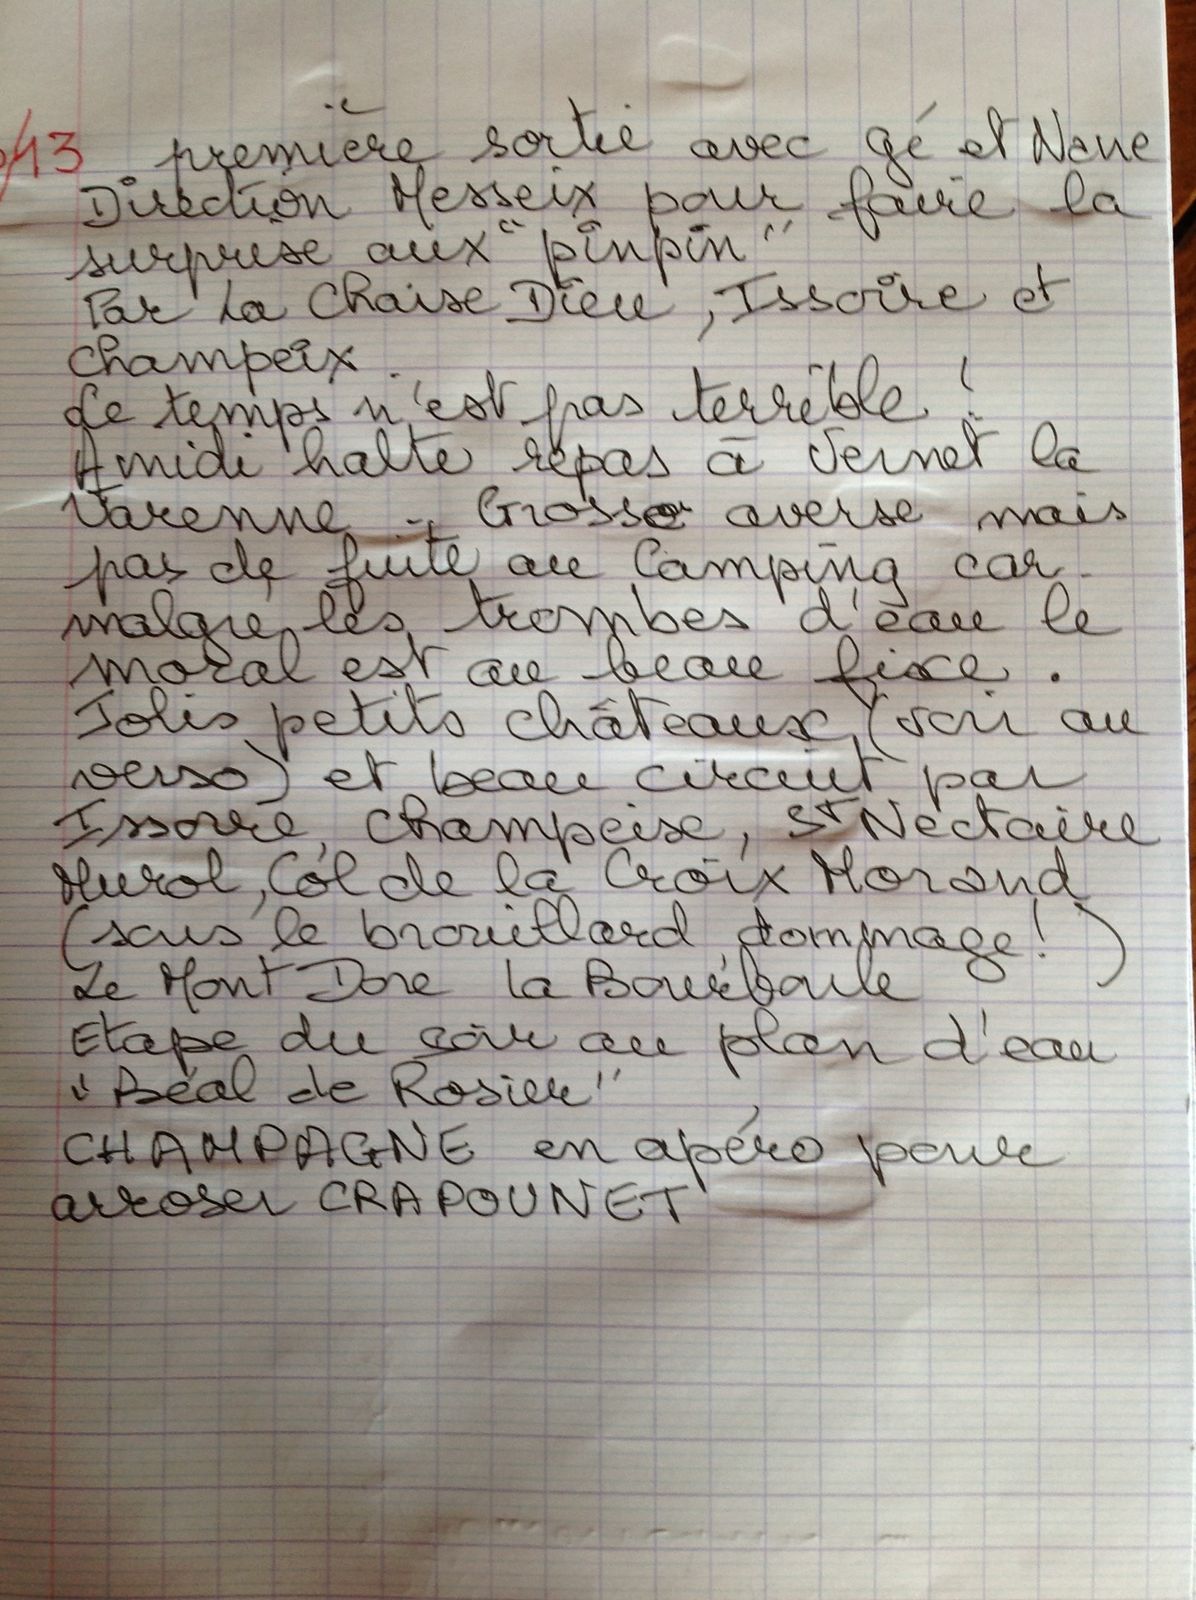 13 première sortie avec gé et Nane
Direction Messeix pour faire la
surprise aux "pinpin"
Par La Chaise Dieu, Issoire et
Champeix.
Le temps n'est pas terrible !
A midi halte repas à Vernet la
Varenne. Grosse averse mais
pas de fuite au Camping car.
malgré les trombes d'eau le
moral est au beau fixe.
Jolis petits châteaux (voir au
verso) et beau circuit par
Issoire, Champeix, St Nectaire
Murol, Col de la Croix Morand
(sous le brouillard dommage!)
Le Mont Dore la Bourboule
Etape du soir au plan d'eau
"Béal de Rosier"
CHAMPAGNE en apéro pour
arroser CRAPOUNET